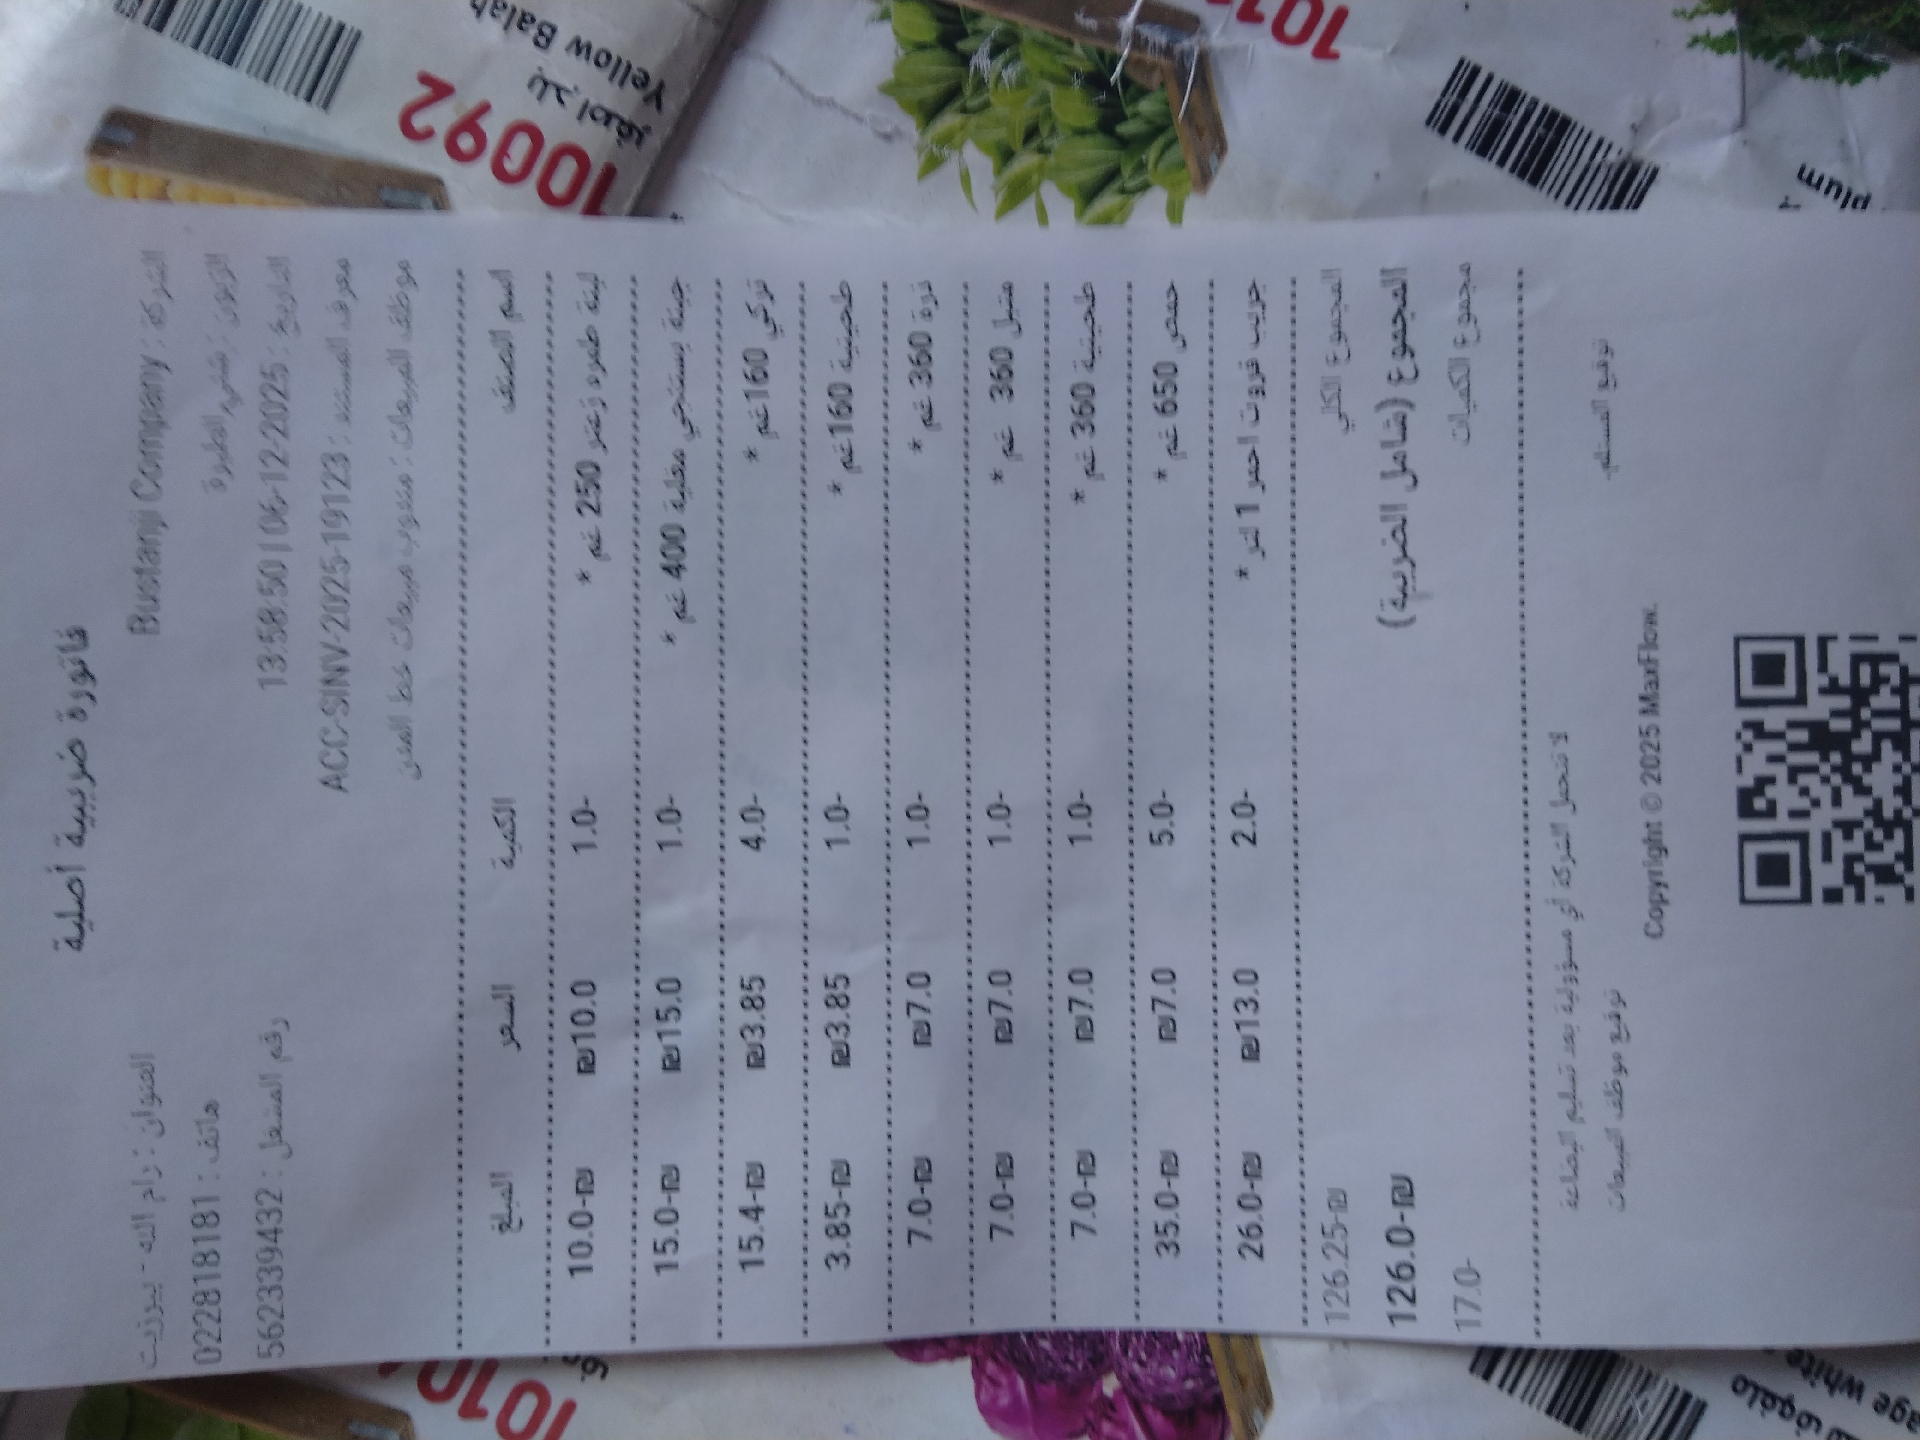 فاتورة ضريبية أصلية
الشركة : Bustanji Company
العنوان : رام الله - بيرزيت
الزبون : شني الطيرة
هاتف : 022818181
التاريخ : 06-12-2025 | 13:58:50
رقم المشغل : 562339432
معرف المستند : ACC-SINV-2025-19123
موظف المبيعات : مندوب مبيعات خط المدن
اسم الصنف الكمية السعر المبلغ
لبنة طمره زعتر 250 غم * 1.0- ₪10.0 10.0-₪
جبنة بستنجي مغلية 400 غم * 1.0- ₪15.0 15.0-₪
تركي 160غم * 4.0- ₪3.85 15.4-₪
طحينية 160غم * 1.0- ₪3.85 3.85-₪
ذرة 360 غم * 1.0- ₪7.0 7.0-₪
متبل 360 غم * 1.0- ₪7.0 7.0-₪
طحينية 360 غم * 1.0- ₪7.0 7.0-₪
حمص 650 غم * 5.0- ₪7.0 35.0-₪
جريب فروت احمر 1 لتر * 2.0- ₪13.0 26.0-₪
المجموع الكلي 126.25-₪
المجموع (شامل الضريبة) 126.0-₪
مجموع الكميات 17.0-
لا تتحمل الشركة أي مسؤولية بعد تسليم البضاعة
توقيع المستلم
توقيع موظف المبيعات
Copyright © 2025 MaxFlow.
10092
بلح اصفر
Yellow Balah
101
plum
1010
ملفوف
age white